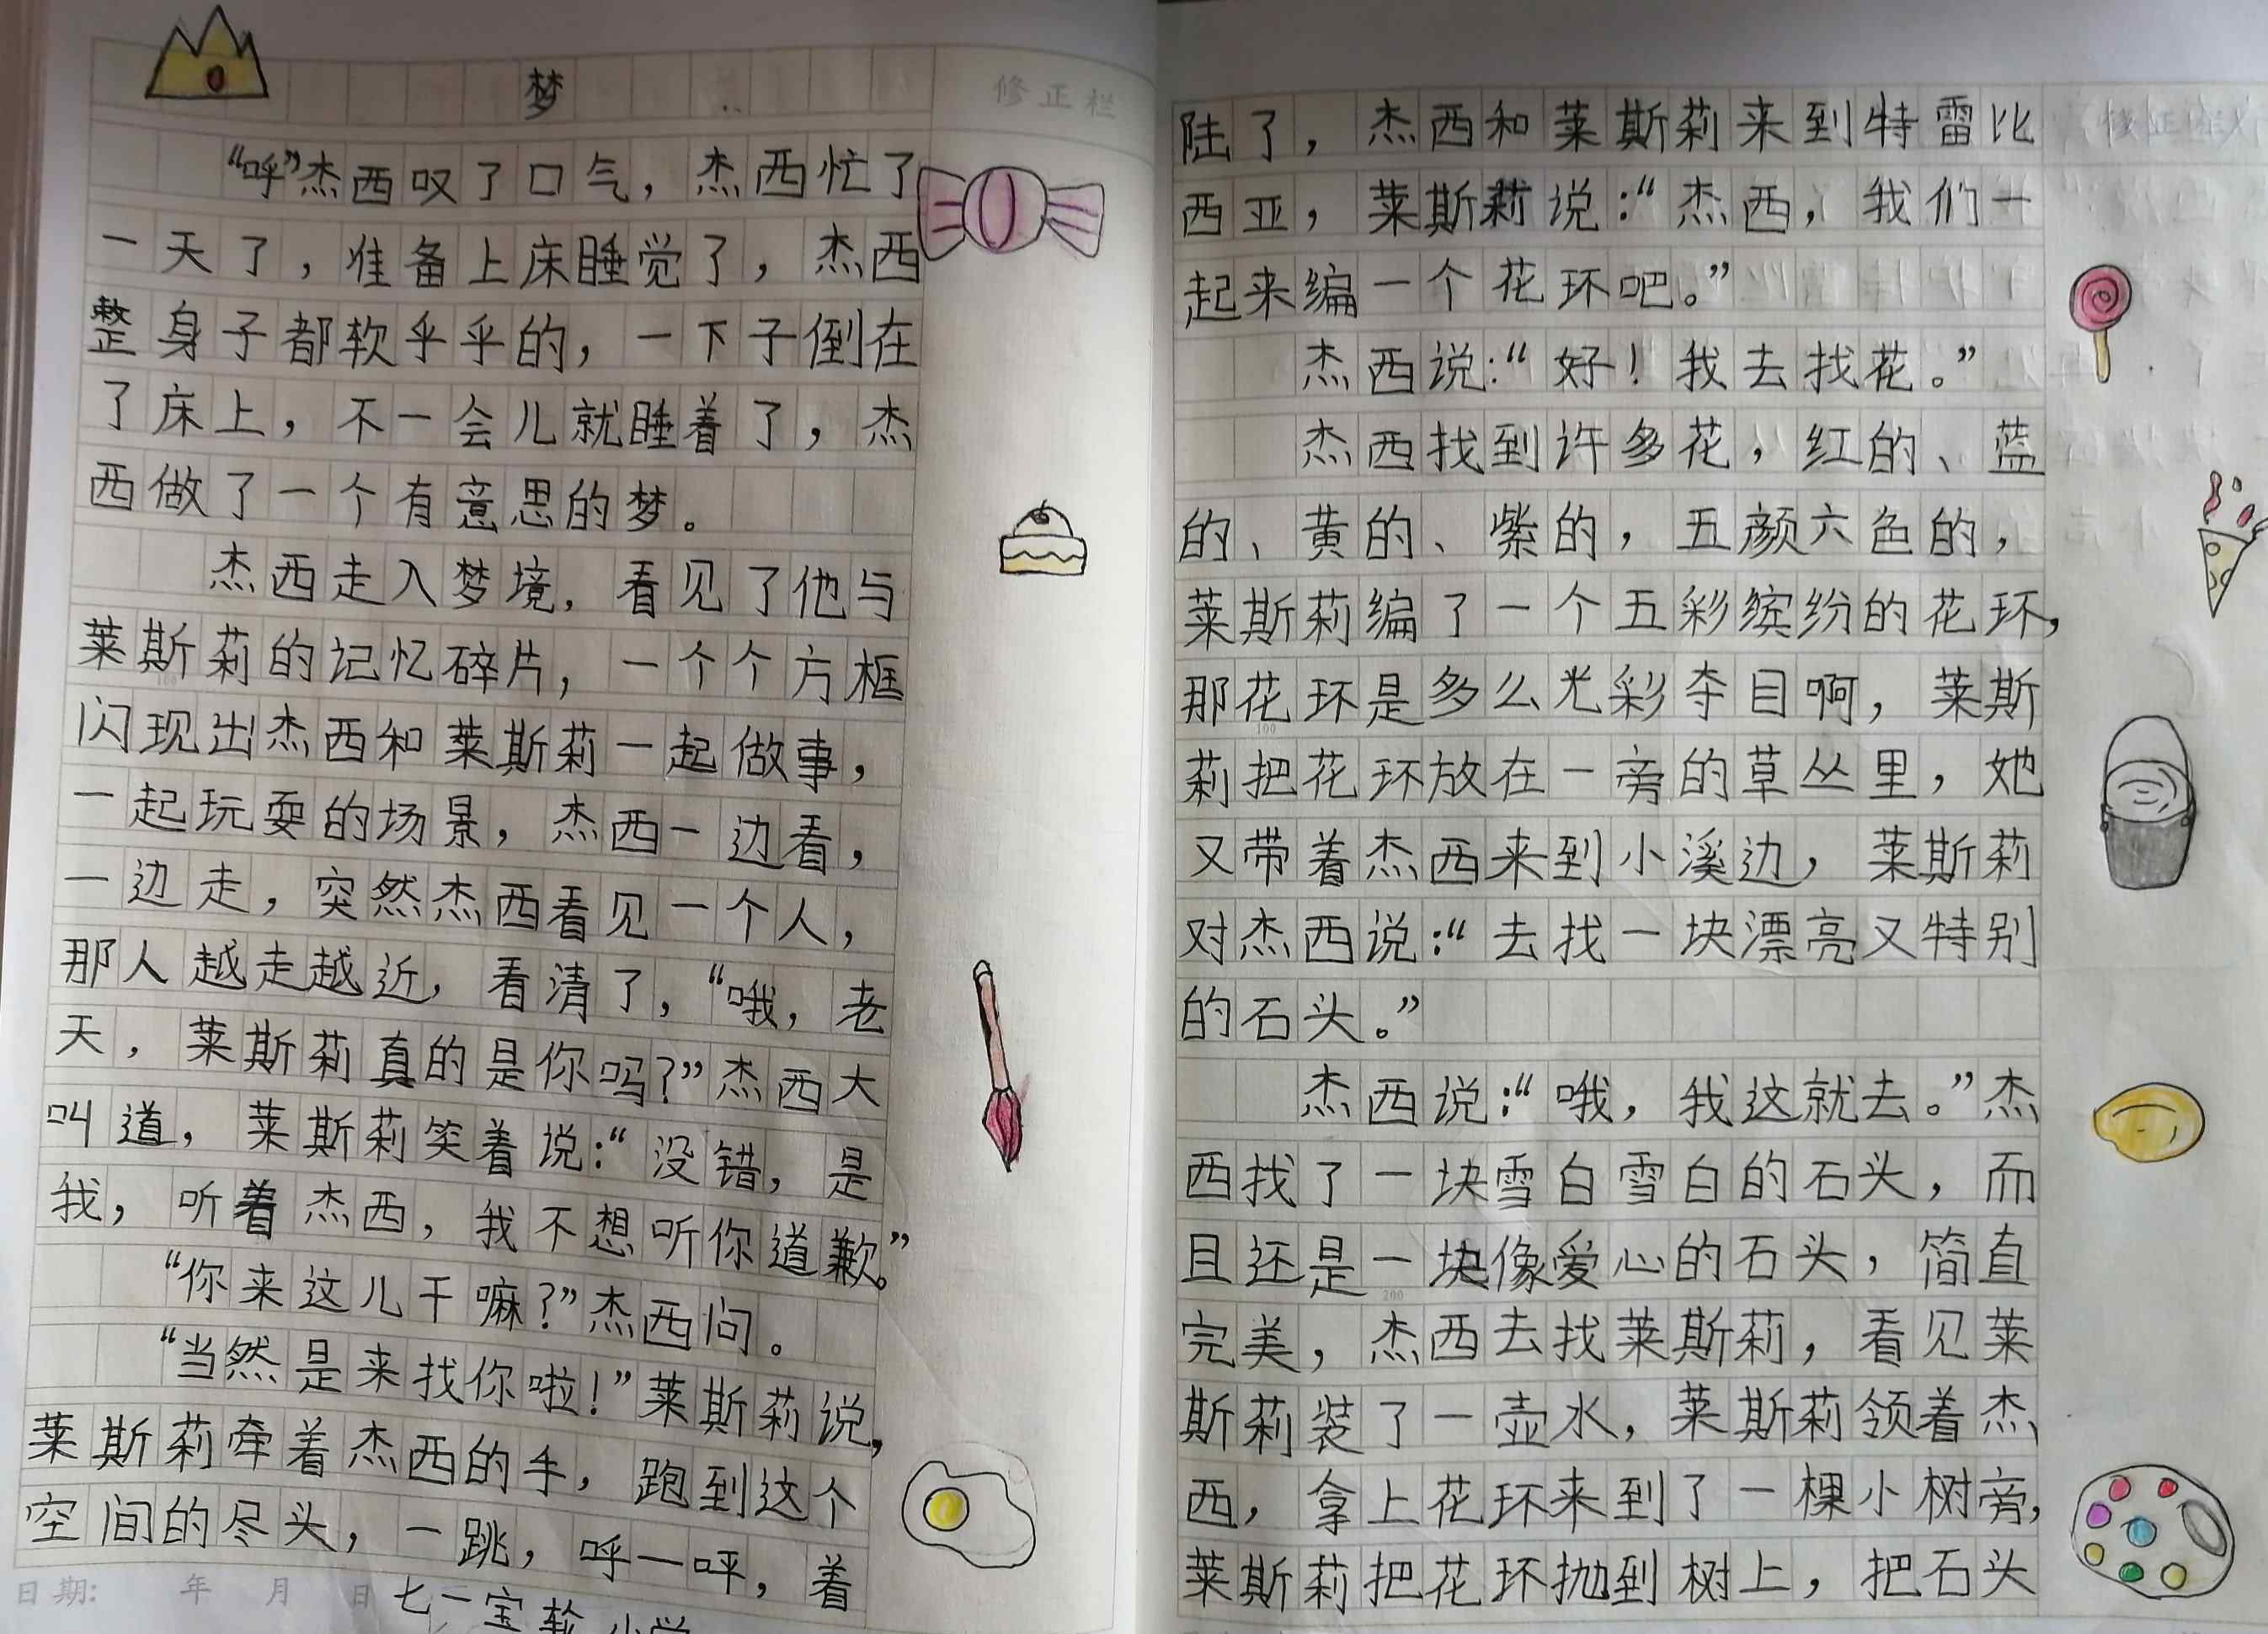 梦
修正栏
“呼”杰西叹了口气，杰西忙了
一天了，准备上床睡觉了，杰西
整身子都软乎乎的，一下子倒在
了床上，不一会儿就睡着了，杰
西做了一个有意思的梦。
杰西走入梦境，看见了他与
莱斯莉的记忆碎片，一个个方框
闪现出杰西和莱斯莉一起做事，
一起玩耍的场景，杰西一边看，
一边走，突然杰西看见一个人，
那人越走越近，看清了，“哦，老
天，莱斯莉真的是你吗？”杰西大
叫道，莱斯莉笑着说：“没错，是
我，听着杰西，我不想听你道歉。”
“你来这儿干嘛？”杰西问。
“当然是来找你啦！”莱斯莉说，
莱斯莉牵着杰西的手，跑到这个
空间的尽头，一跳，呼一呼，着
日期： 年 月 日
七一宝龄小学
陆了，杰西和莱斯莉来到特雷比
修正栏
西亚，莱斯莉说：“杰西，我们一
起来编一个花环吧。”
杰西说：“好！我去找花。”
杰西找到许多花，红的、蓝
的、黄的、紫的，五颜六色的，
莱斯莉编了一个五彩缤纷的花环，
那花环是多么光彩夺目啊，莱斯
莉把花环放在一旁的草丛里，她
又带着杰西来到小溪边，莱斯莉
对杰西说：“去找一块漂亮又特别
的石头。”
杰西说：“哦，我这就去。”杰
西找了一块雪白雪白的石头，而
且还是一块像爱心的石头，简直
完美，杰西去找莱斯莉，看见莱
斯莉装了一壶水，莱斯莉领着杰
西，拿上花环来到了一棵小树旁，
莱斯莉把花环抛到树上，把石头